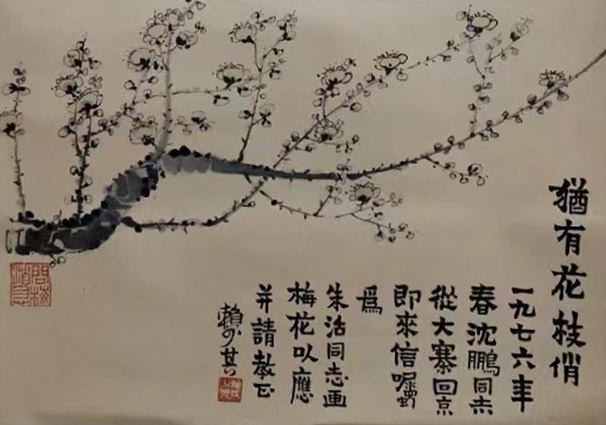 猶有花枝俏
一九七六年
春沈鵬同志
從大寨回京
即來信囑
為
朱治同志画
梅花以應
并請教正
賴少其